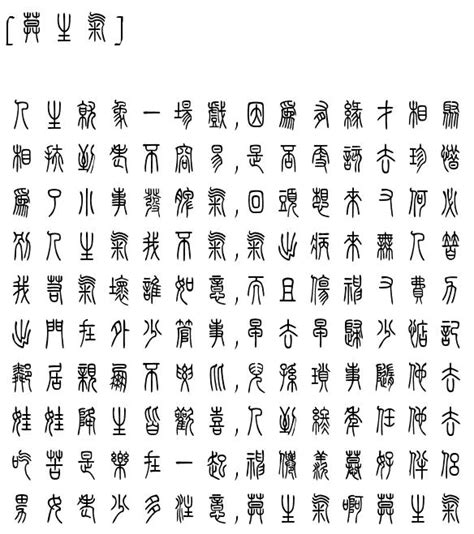 [莫生氣]
人生就象一場戲,因為有緣才相聚
相扶到老不容易,是否更該去珍惜
為了小事發脾氣,回頭想來又何必
別人生氣我不氣,氣出病來無人替
我若氣壞誰如意,而且傷神又費力
出門在外少管事,早去早歸少惦記
鄰居親朋不要比,兒孫瑣事隨他去
娃娃降生皆歡喜,人到終年任他去
吃苦是樂在一起,神仙羨慕好伴侶
男女老少多注意,莫生氣啊莫生氣